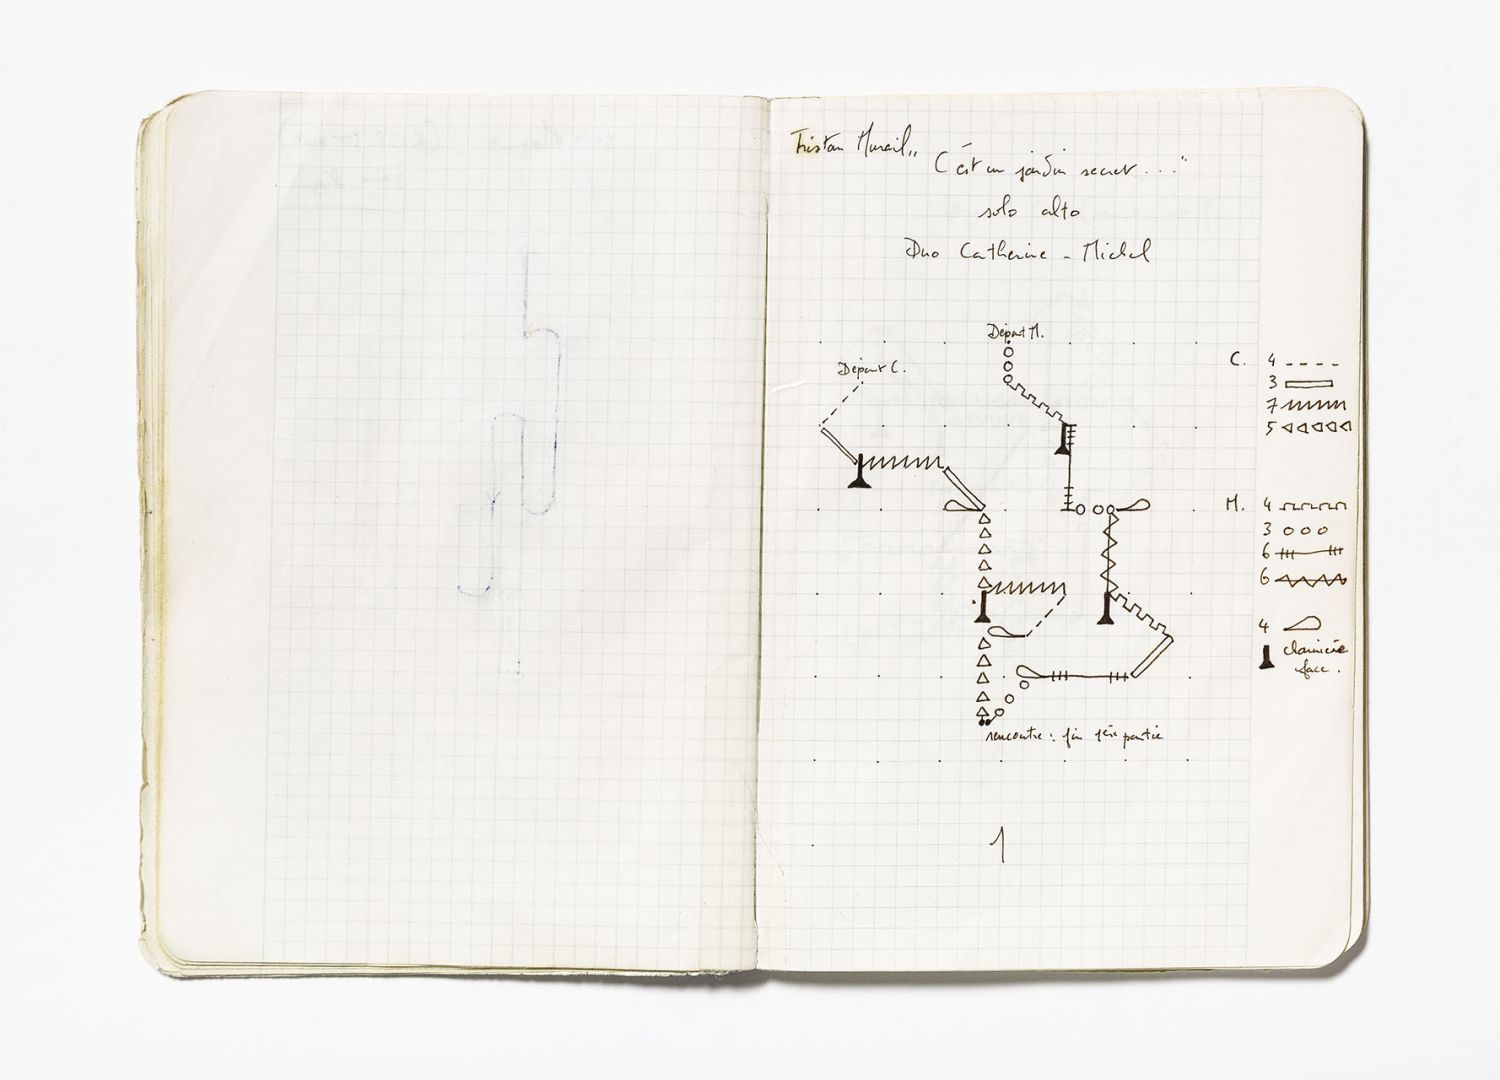 Tristan Murail,,
C'est un jardin secret..."
solo alto
Duo Catherine - Michel
Départ M.
Départ C.
C. 4
3
7
5
M. 4
3
6
6
4
charnière
face.
rencontre : fin 1ère partie
1